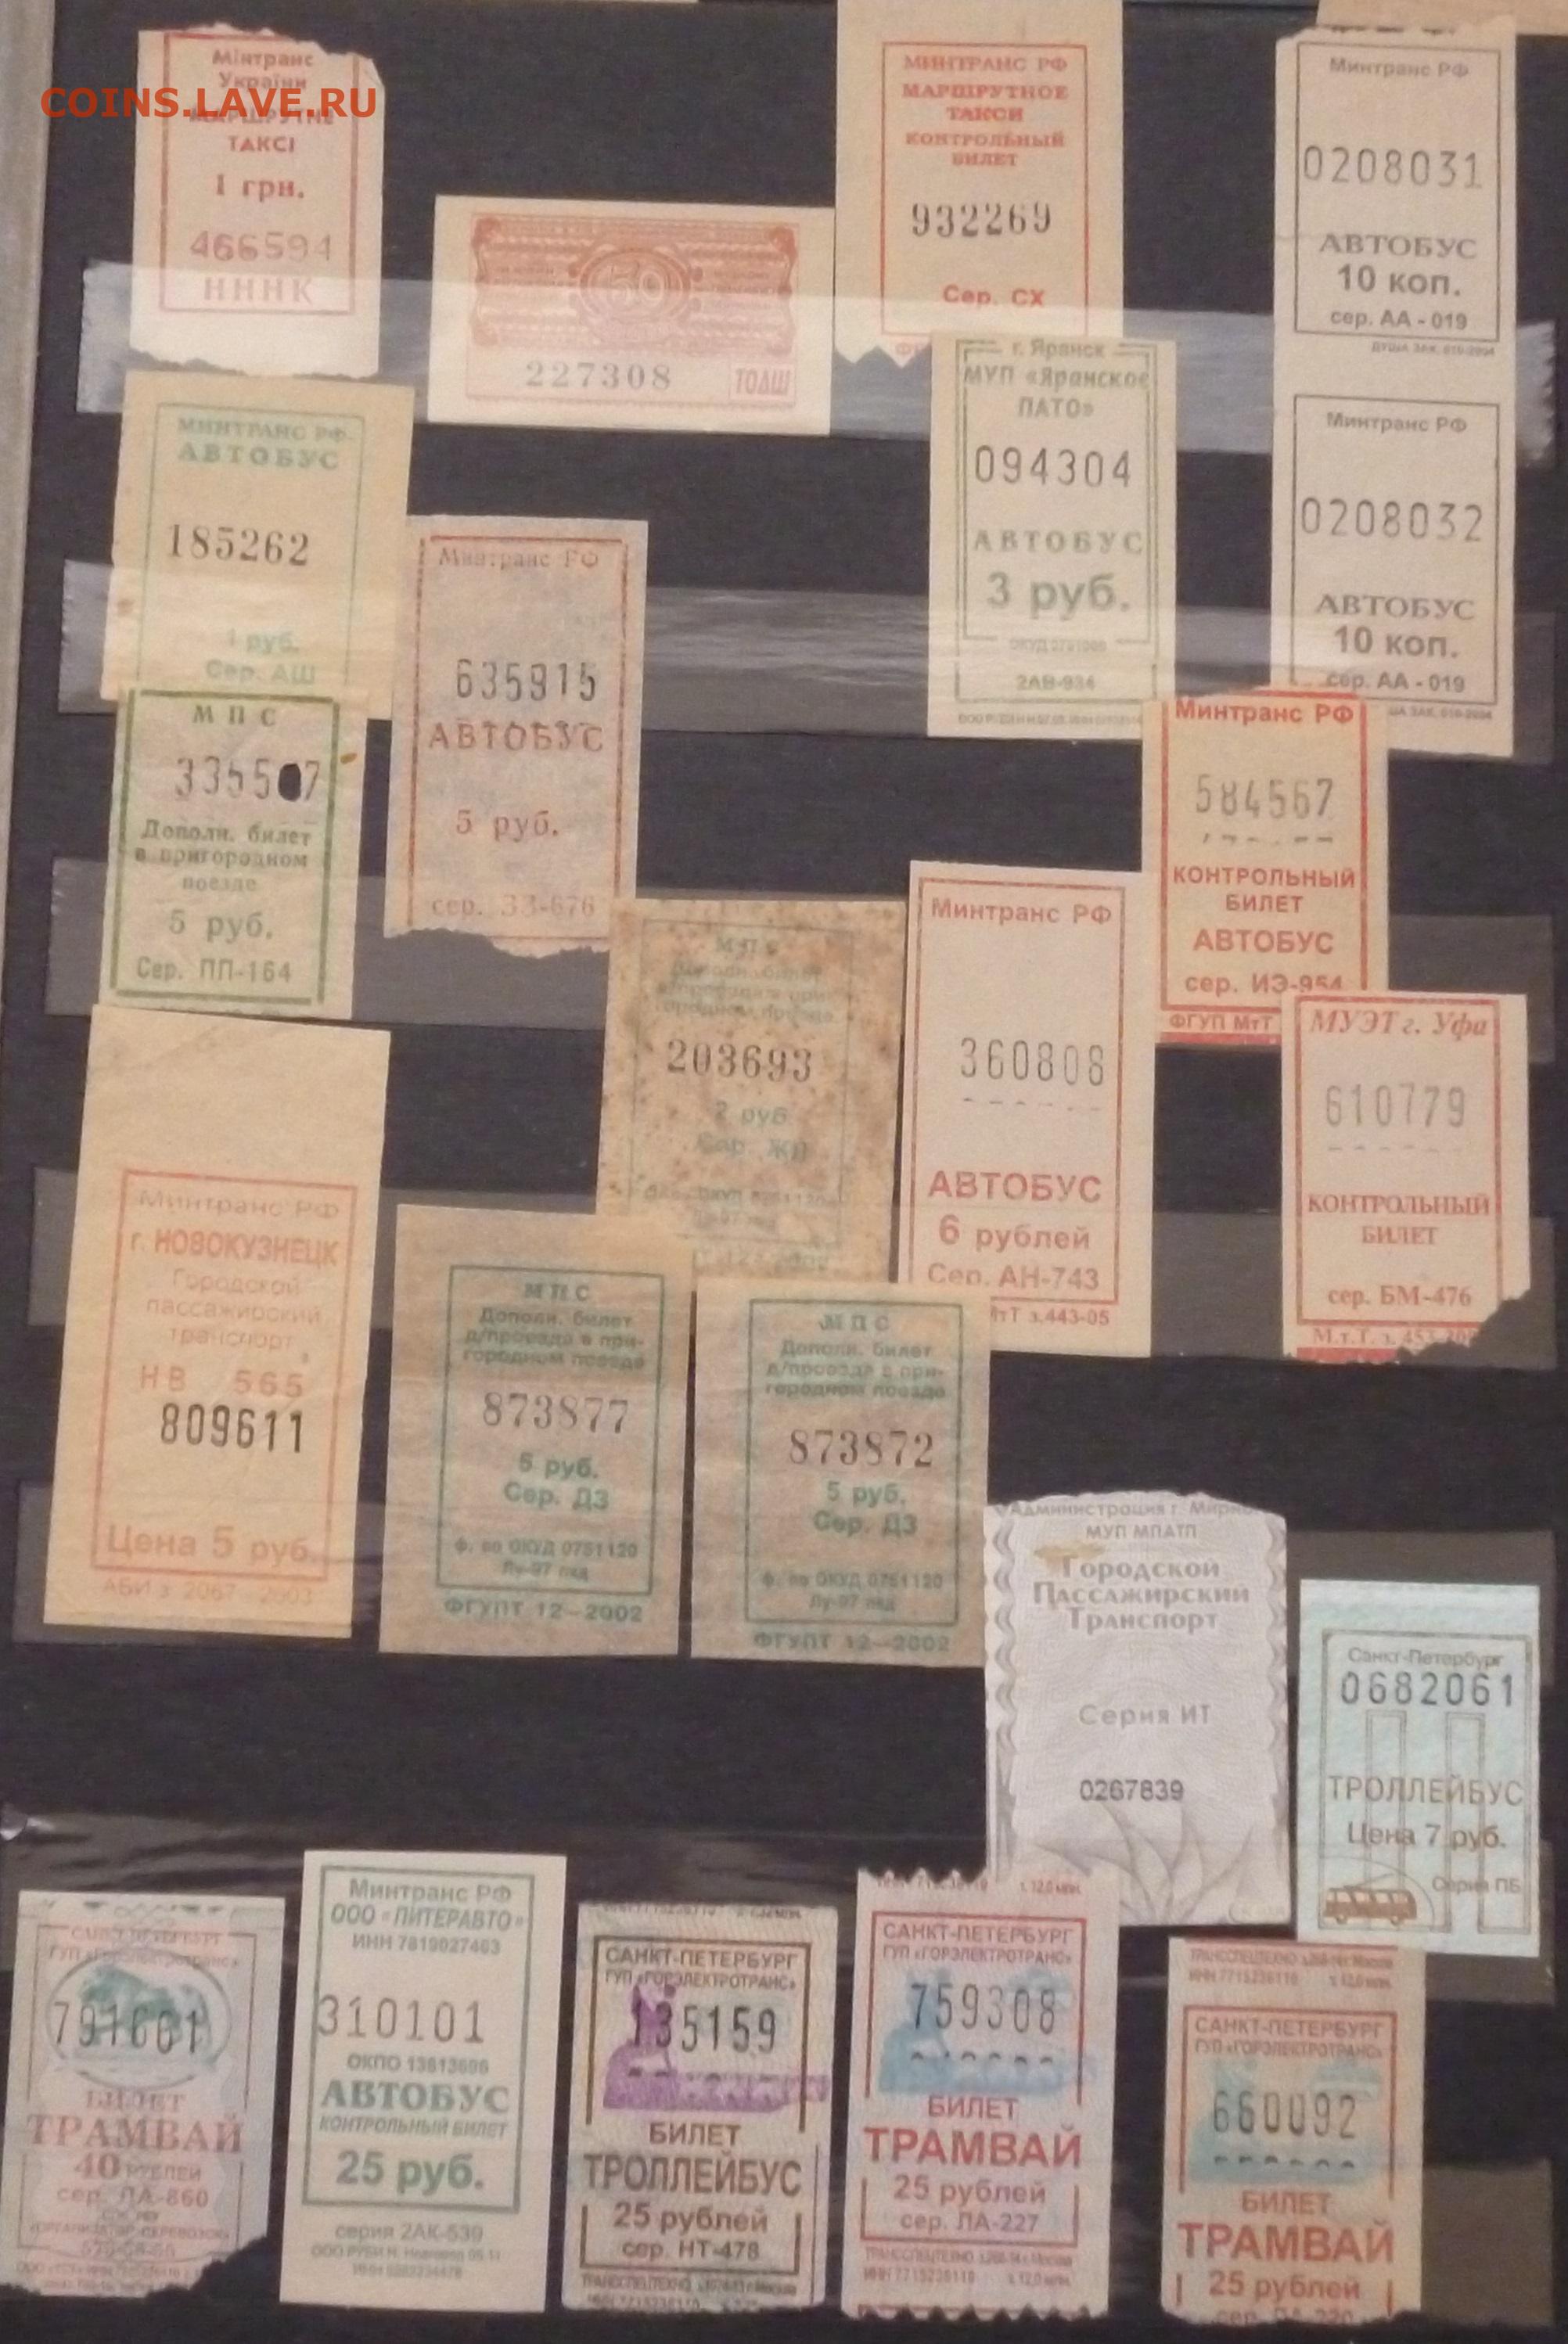 COINS.LAVE.RU
Мінтранс
України
МАРШРУТНЕ
ТАКСІ
1 грн.
466594
НННК
50
227308
ТОДШ
МИНТРАНС РФ
МАРШРУТНОЕ
ТАКСИ
КОНТРОЛЬНЫЙ
БИЛЕТ
932269
Сер. СХ
Минтранс РФ
0208031
АВТОБУС
10 коп.
сер. АА - 019
Минтранс РФ
0208032
АВТОБУС
10 коп.
сер. АА - 019
г. Яранск
МУП «Яранское
ПАТО»
094304
АВТОБУС
3 руб.
2АВ-934
МИНТРАНС РФ
АВТОБУС
185262
1 руб.
Сер. АШ
Минтранс РФ
635915
АВТОБУС
5 руб.
сер. ЗЗ-676
МПС
Дополн. билет
в пригородном
поезде
5 руб.
Сер. ПП-164
Минтранс РФ
584567
КОНТРОЛЬНЫЙ
БИЛЕТ
АВТОБУС
сер. ИЭ-954
ФГУП МтТ
МПС
203693
2 руб.
Минтранс РФ
360808
АВТОБУС
6 рублей
Сер. АН-743
МтТ з.443-05
МУЭТ г. Уфа
610779
КОНТРОЛЬНЫЙ
БИЛЕТ
сер. БМ-476
Минтранс РФ
г. НОВОКУЗНЕЦК
Городской
пассажирский
транспорт
НВ 565
809611
Цена 5 руб.
АБИ з. 2067 - 2003
МПС
Дополн. билет
д/проезда в при-
городном поезде
873877
5 руб.
Сер. ДЗ
ф. по ОКУД 0751120
Лу-97 пкд
ФГУПТ 12-2002
МПС
Дополн. билет
д/проезда в при-
городном поезде
873872
5 руб.
Сер. ДЗ
ф. по ОКУД 0751120
Лу-97 пкд
ФГУПТ 12-2002
Администрация г.
МУП МПАТП
Городской
Пассажирский
Транспорт
Серия ИТ
0267839
Санкт-Петербург
0682061
ТРОЛЛЕЙБУС
Цена 7 руб.
Серия ПБ
САНКТ-ПЕТЕРБУРГ
ГУП «Горэлектротранс»
БИЛЕТ
ТРАМВАЙ
40 РУБЛЕЙ
сер. ЛА-860
«ОРГАНИЗАТОР ПЕРЕВОЗОК»
Минтранс РФ
ООО «ПИТЕРАВТО»
ИНН 7819027463
310101
АВТОБУС
КОНТРОЛЬНЫЙ БИЛЕТ
25 руб.
серия 2АК-539
САНКТ-ПЕТЕРБУРГ
ГУП «ГОРЭЛЕКТРОТРАНС»
135159
БИЛЕТ
ТРОЛЛЕЙБУС
25 рублей
сер. НТ-478
САНКТ-ПЕТЕРБУРГ
ГУП «ГОРЭЛЕКТРОТРАНС»
759308
БИЛЕТ
ТРАМВАЙ
25 рублей
сер. ЛА-227
ИНН 7715236119
САНКТ-ПЕТЕРБУРГ
ГУП «ГОРЭЛЕКТРОТРАНС»
660092
БИЛЕТ
ТРАМВАЙ
25 рублей